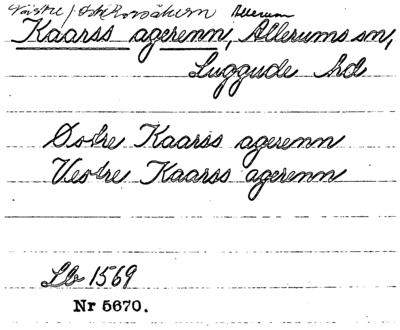 Västre / Östre Korsåkern Allerum
Kaarss agerenn, Allerums sn,
Luggude hd
Østre Kaarss agerenn
Vestre Kaarss agerenn
Lb 1569
Nr 5670.